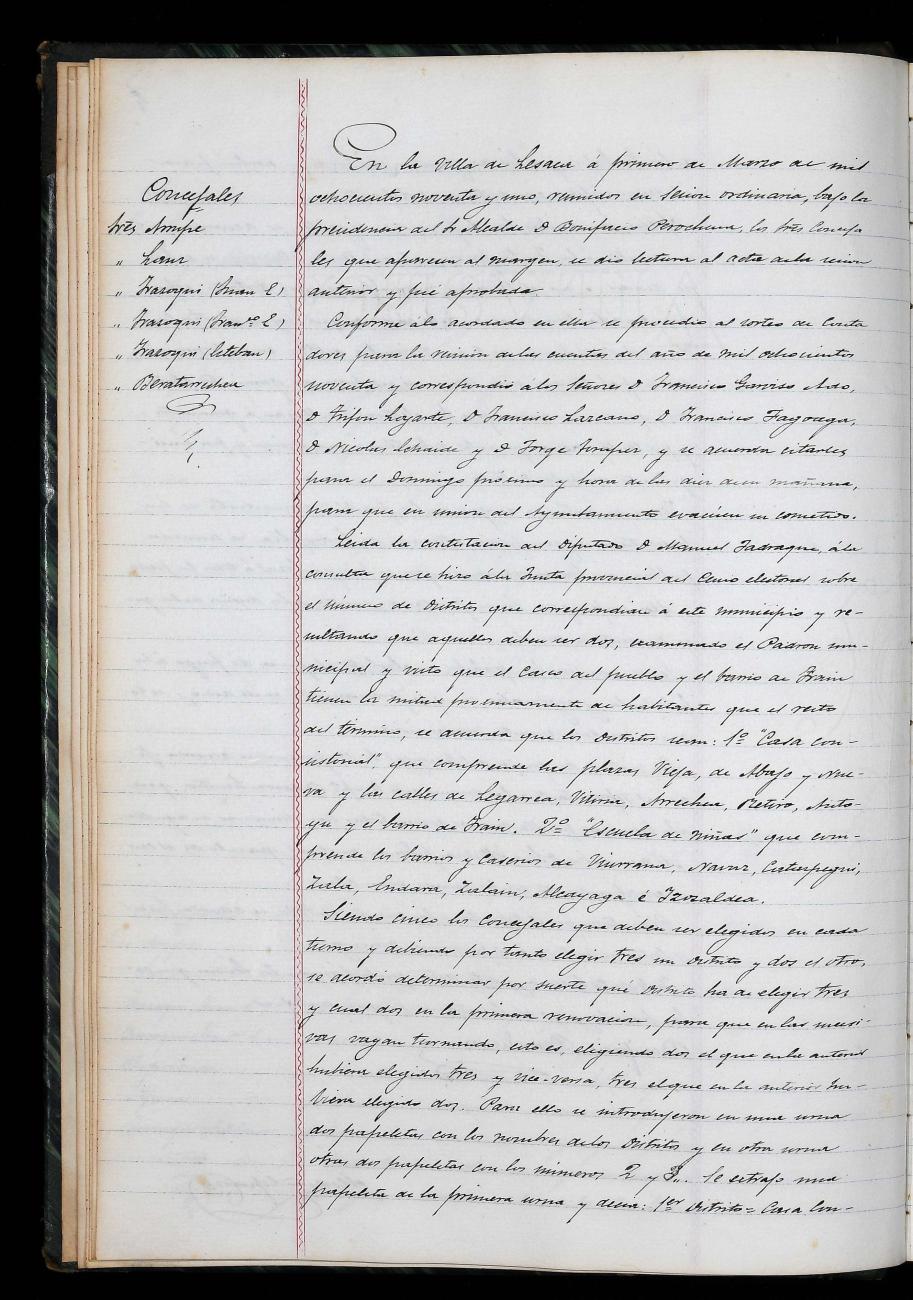 Concejales
Sres Arrupe
" Lanz
" Irazoqui (Juan E)
" Irazoqui (Franco E)
" Irazoqui (Esteban)
" Beratarrechea
En la Villa de Lesaca á primero de Marzo de mil
ochocientos noventa y uno, reunidos en sesion ordinaria, bajo la
presidencia del Sr Alcalde D Bonifacio Perochena, los Sres Conceja
les que aparecen al margen, se dio lectura al acta dela sesion
anterior y fué aprobada.
Conforme álo acordado en ella se procedio al sorteo de Conta
dores para la revision delas cuentas del año de mil ochocientos
noventa y correspondio álos Señores D Francisco Garviso Ardo,
D Trifon Loyarte, D Francisco Lazcano, D Francisco Fagoaga,
D Nicolas Echaide y D Jorge, y se acuerda citarles
para el Domingo próximo y hora de las diez dela mañana,
para que en union del Ayuntamiento evacúen su cometido.
Leida la contestacion del Diputado D Manuel Jadraque, ála
consulta que se hizo ála Junta provincial del Censo electoral sobre
el número de Distritos que correspondian á este municipio y re-
sultando que aquellos deben ser dos, examinado el Padron mu-
nicipal y visto que el Casco del pueblo y el barrio de Frain
tienen la mitad proximamente de habitantes que el resto
del termino, se acuerda que los Distritos sean: 1º "Casa con-
sistorial", que comprende las plazas Vieja, de Abajo y Nue-
va y las calles de Legarrea, Vitoria, Arrechea, Retiro, Anto-
yu y el barrio de Frain. 2º "Escuela de Niñas" que com-
prende los barrios y Caserios de Viurrana, Navaz,
Zala, Endara, Zalain, Alcayaga é Izozaldea.
Siendo cinco los Concejales que deben ser elegidos en cada
turno y debiendo por tanto elegir tres un Distrito y dos el otro,
se acordó determinar por suerte qué Distrito ha de elegir tres
y cual dos en la primera renovacion, para que en las sucesi-
vas vayan turnando, esto es, eligiendo dos el que enla anterior
hubiera elegidos tres y vice-versa, tres el que en la anterior hu-
biera elegido dos. Para ello se introdujeron en una urna
dos papeletas con los nombres delos Distritos y en otra urna
otras dos papeletas con los números 2 y 3,,. Se extrajo una
papeleta de la primera urna y decia: 1er Distrito= Casa Con-